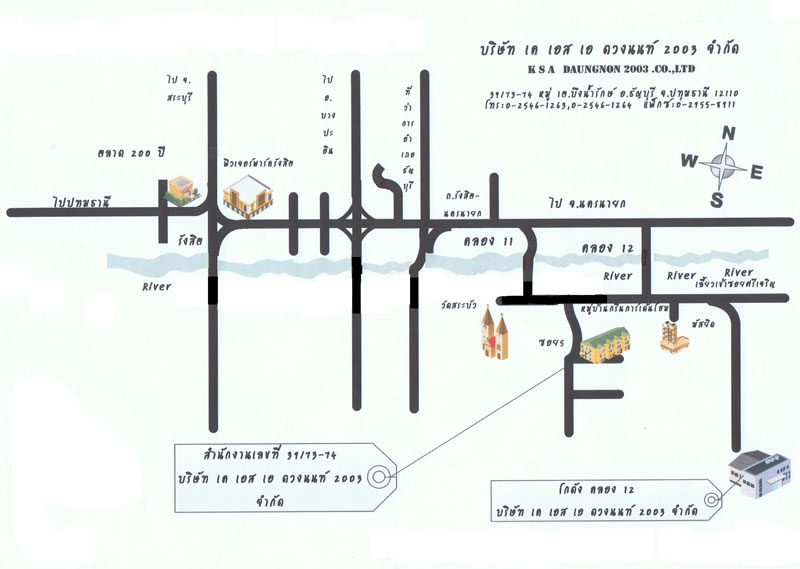 บริษัท เค เอส เอ ดวงนนท์ 2003 จำกัด
K S A DAUNGNON 2003 .CO.,LTD
39/73-74 หมู่ 1ต.บึงน้ำรักษ์ อ.ธัญบุรี จ.ปทุมธานี 12110
โทร:0-2546-1263,0-2546-1264 แฟ็กซ:0-2955-8911
ไป จ.
สระบุรี
ไป
อ.
บางปะอิน
ที่ว่าการอำเภอธัญบุรี
N
W
E
S
ตลาด 200 ปี
ฟิวเจอร์พาร์ครังสิต
ไปปทุมธานี
ถ.รังสิต-
นครนายก
ไป จ.นครนายก
รังสิต
คลอง 11
คลอง 12
River
River
River
River
เลี้ยวเข้าซอยศรีเจริญ
วัดสระบัว
หมู่บ้านกรีนการ์เด้นโฮม
มัสยิด
ซอย5
สำนักงานเลขที่ 39/73-74
บริษัท เค เอส เอ ดวงนนท์ 2003
จำกัด
โกดัง คลอง 12
บริษัท เค เอส เอ ดวงนนท์ 2003 จำกัด